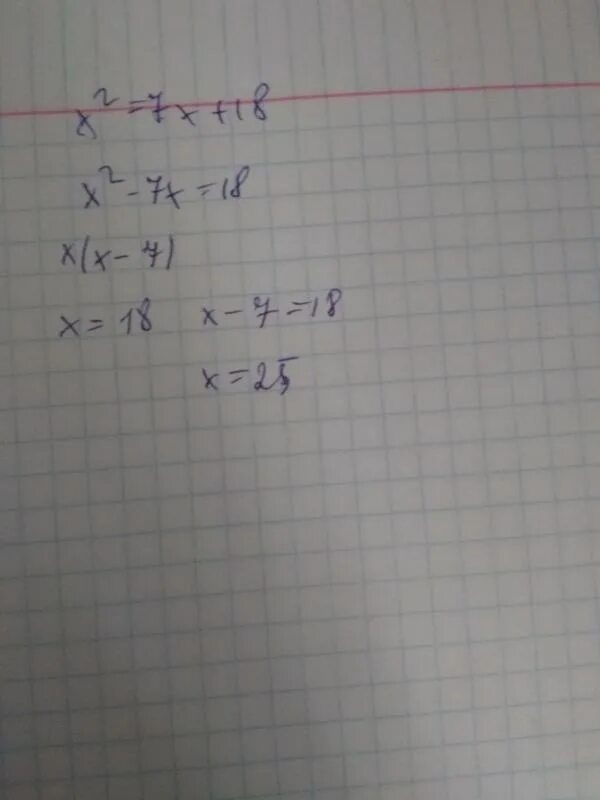 x² = 7x + 18
x² - 7x = 18
x(x - 7)
x = 18 x - 7 = 18
x = 25